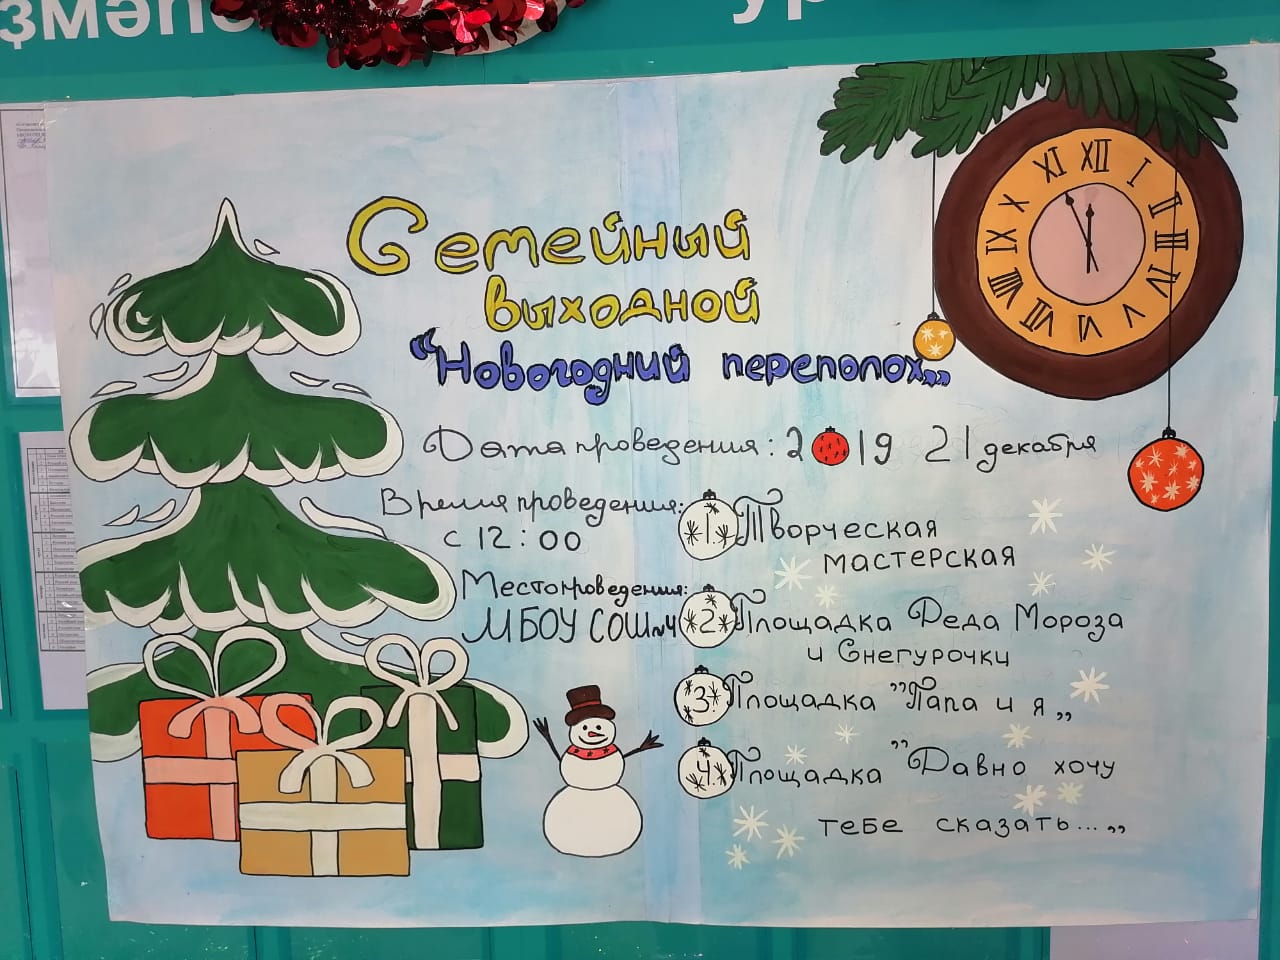 Семейный
выходной
“Новогодний переполох„
Дата проведения: 2019 21 декабря
Время проведения:
с 12:00
Место проведения:
МБОУ СОШ №4
1. Творческая
мастерская
2. Площадка Деда Мороза
и Снегурочки
3. Площадка "Папа и я„
4. Площадка "Давно хочу
тебе сказать...„
XII
I
II
III
IV
V
VI
VII
VIII
IX
X
XI